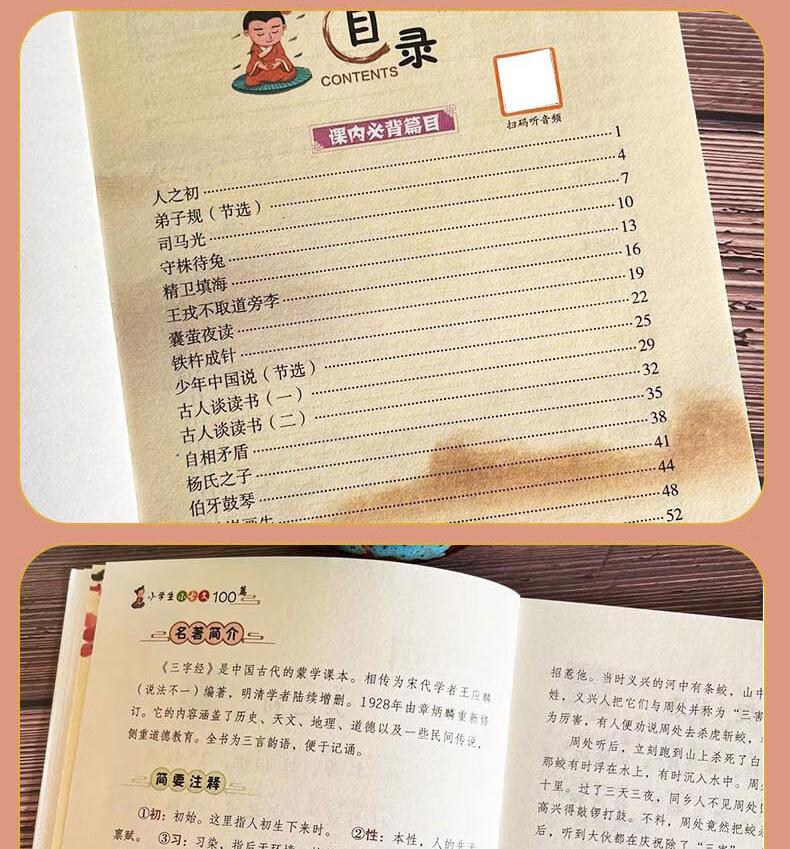 目录
CONTENTS
扫码听音频
课内必背篇目
人之初 1
弟子规（节选） 4
司马光 7
守株待兔 10
精卫填海 13
王戎不取道旁李 16
囊萤夜读 19
铁杵成针 22
少年中国说（节选） 25
古人谈读书（一） 29
古人谈读书（二） 32
自相矛盾 35
杨氏之子 38
伯牙鼓琴 41
44
48
52
小学生小古文100篇
名著简介
《三字经》是中国古代的蒙学课本。相传为宋代学者王应麟
（说法不一）编著，明清学者陆续增删。1928年由章炳麟重新修
订。它的内容涵盖了历史、天文、地理、道德以及一些民间传说，
侧重道德教育。全书为三言韵语，便于记诵。
简要注释
①初：初始。这里指人初生下来时。 ②性：本性，人的生
禀赋。 ③习：习染，指后天环境
招惹他。当时义兴的河中有条蛟，山中
姓，义兴人把它们与周处并称为“三害
为厉害，有人便劝说周处去杀虎斩蛟，
周处听后，立刻跑到山上杀死了白
那蛟有时浮在水上，有时沉入水中。周
十里。过了三天三夜，同乡人不见周处
高兴得敲锣打鼓。不料，周处竟然把蛟杀
后，听到大伙都在庆祝除了“三害”